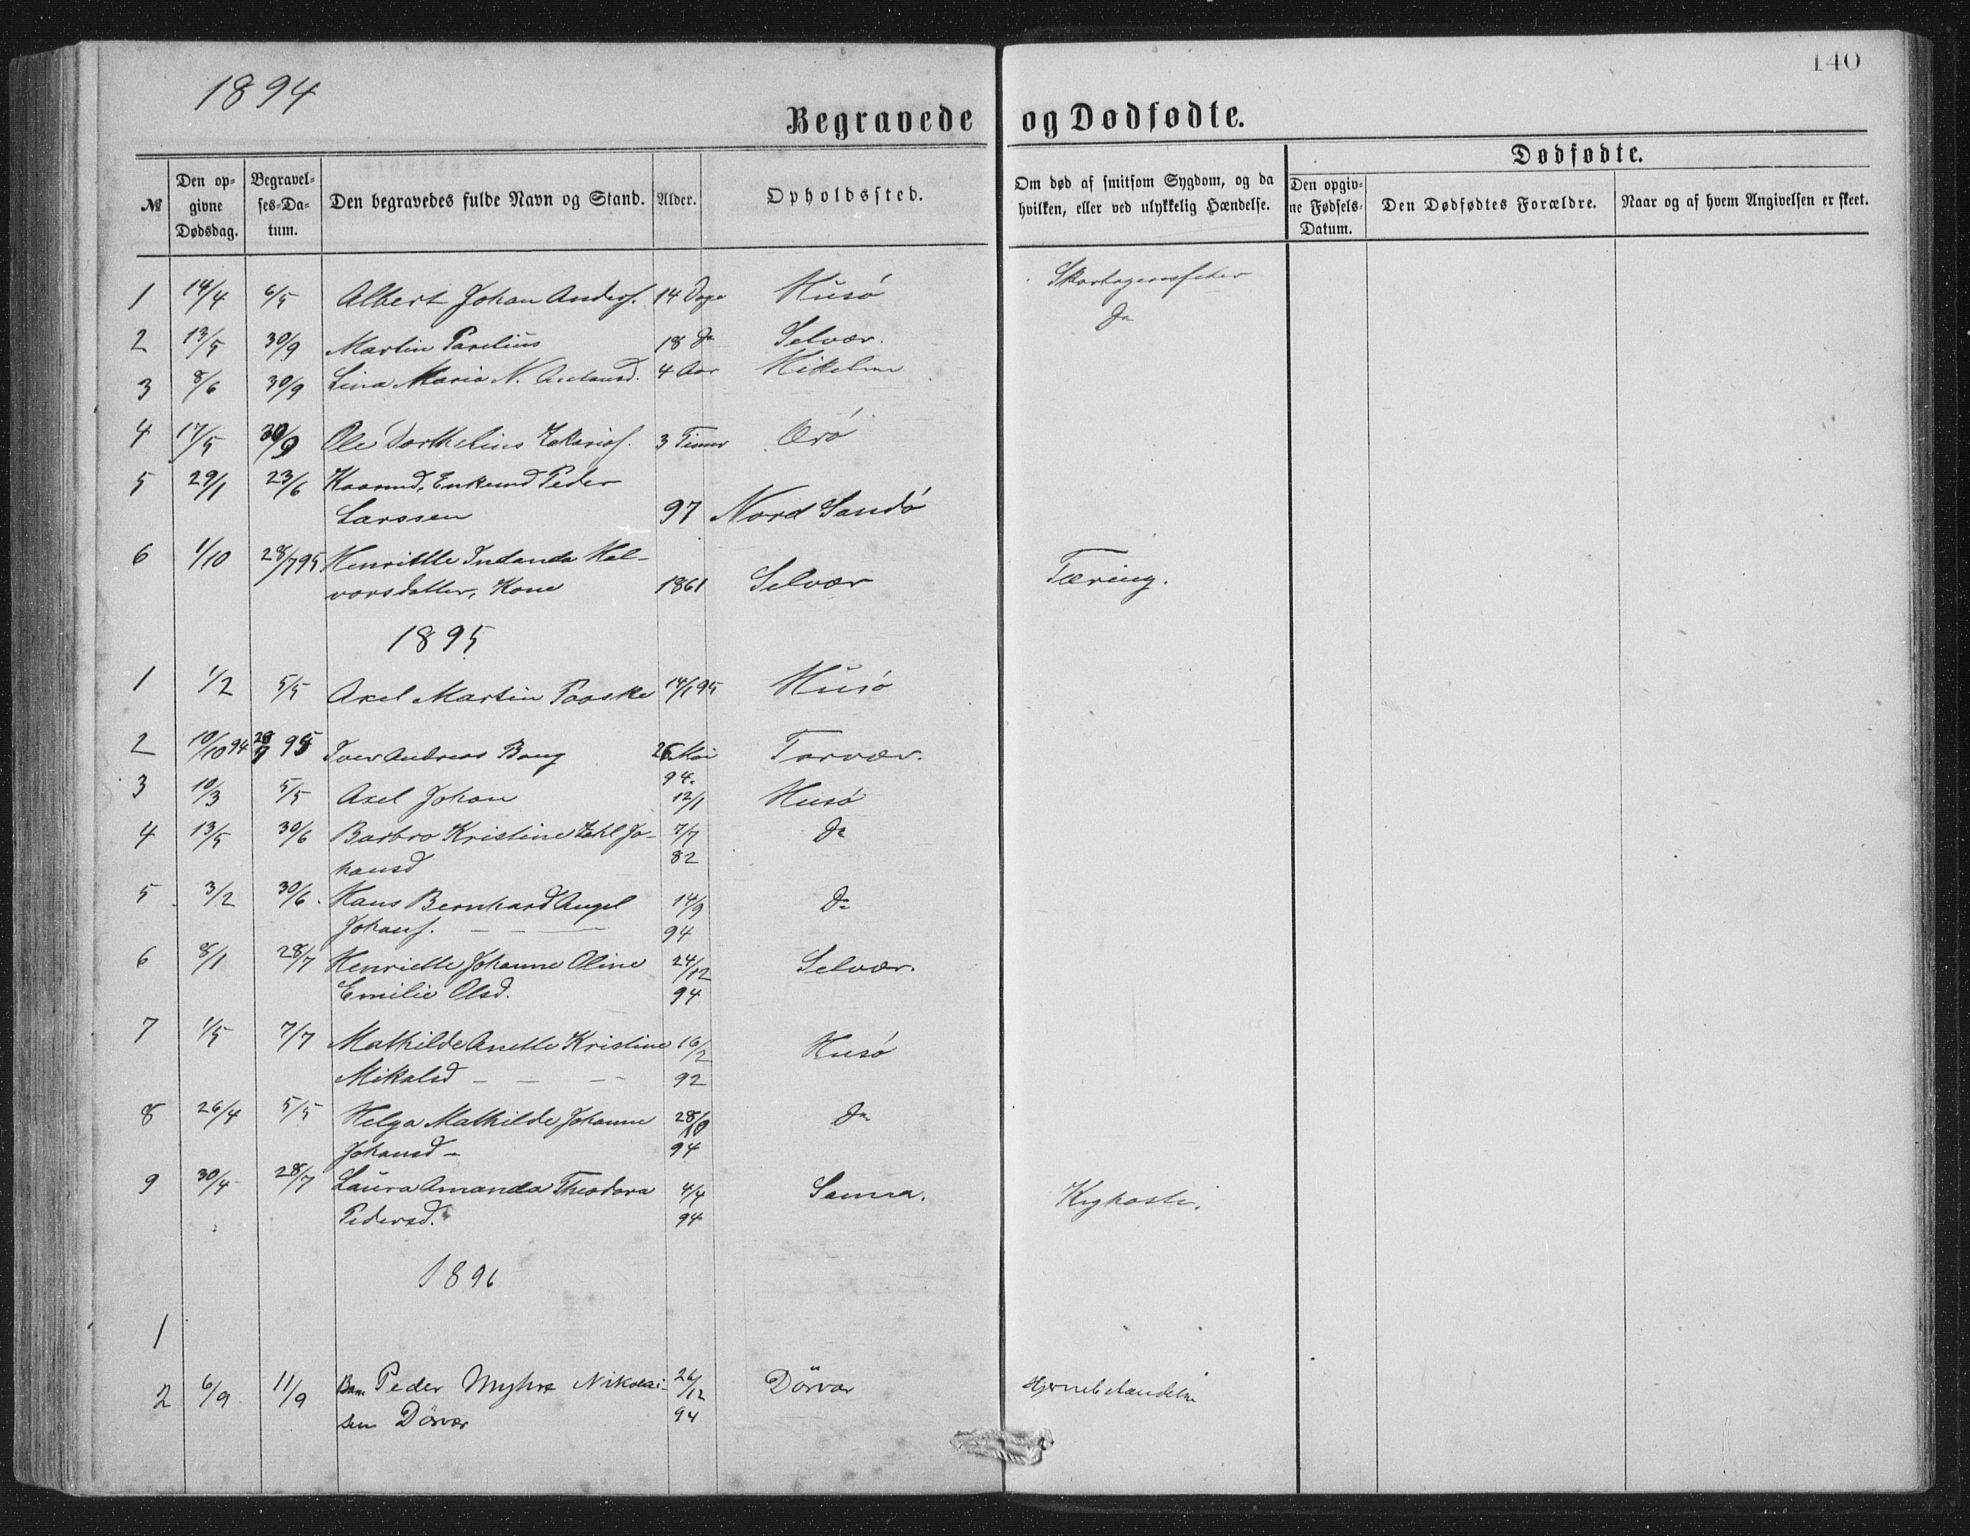 1894
140
Begravede og Dødfødte.
№
Den opgivne Dødsdag.
Begravelses-Datum.
Den begravedes fulde Navn og Stand.
Alder.
Opholdssted.
Om død af smitsom Sygdom, og da hvilken, eller ved ulykkelig Hændelse.
Dødfødte.
Den opgivne Fødsels-Datum.
Den Dødfødtes Forældre.
Naar og af hvem Angivelsen er skeet.
1 14/4 6/5 Albert Johan Anders. 14 Dage Husø
2 13/5 30/9 Martin Parelius 18 do Selvær. do
3 8/6 30/9 Lina Maria N. 4 Aar
4 17/5 30/9 Ole Dorthelius Zakarias. 3 Timer Ærø
5 29/1 23/6 Kaarmd. Enkemd Peder
Larssen 97 Nord Sandø
6 1/10 28/7 95 Henriette Indanda Hal-
vorsdatter, Kone 1861 Selvær Tæring.
1895
1 1/2 5/5 Axel Martin Paaske 14/1 95 Husø
2 10/10 94 95 Iver Andreas Bang 26 Mai 94. Torvær.
3 10/3 5/5 Axel Johan 12/1 Husø
4 13/5 30/6 Barbro Kristine Zahl Jo-
hansd 7/7 82 do
5 3/2 30/6. Hans Bernhard Angel
Johans. 14/9 94 Do
6 8/1 28/7 Henriette Johanne Oline
Emilie Olsd. 24/12 94 Selvær.
7 1/5 7/7 Mathilde Anette Kristine
Mikalsd 16/2 92 Husø
8 26/4 5/5 Helga Mathilde Johanne
Johansd 28/10 94 do
9 30/4 28/7 Laura Amanda Theodora
Pedersd. 4/4 94 Sanna. Kighoste.
1896
1
2 6/9 11/9 Barn Peder Myhre Nikolai-
sen Dörvær 26/12 94 Dörvær